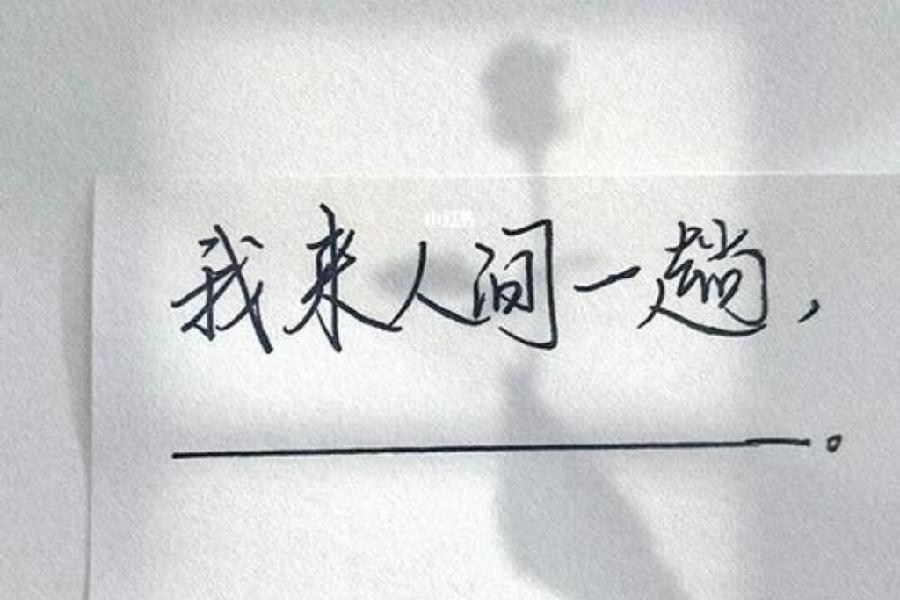 我来人间一趟，
小红书
。